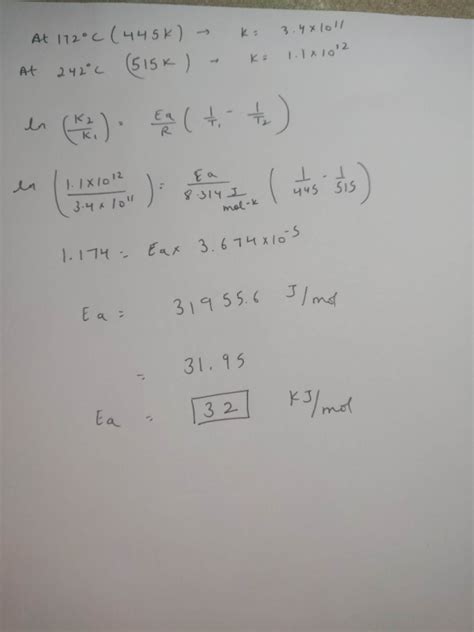 At 172°C (445K) → K = 3.4×10¹¹
At 242°C (515K) → K = 1.1×10¹²
ln (K₂/K₁) = Ea/R (1/T₁ - 1/T₂)
ln (1.1×10¹²/3.4×10¹¹) = Ea/8.314 J/mol-K (1/445 - 1/515)
1.174 = Ea × 3.674×10⁻⁵
Ea = 31955.6 J/mol
= 31.95
Ea = 32 KJ/mol